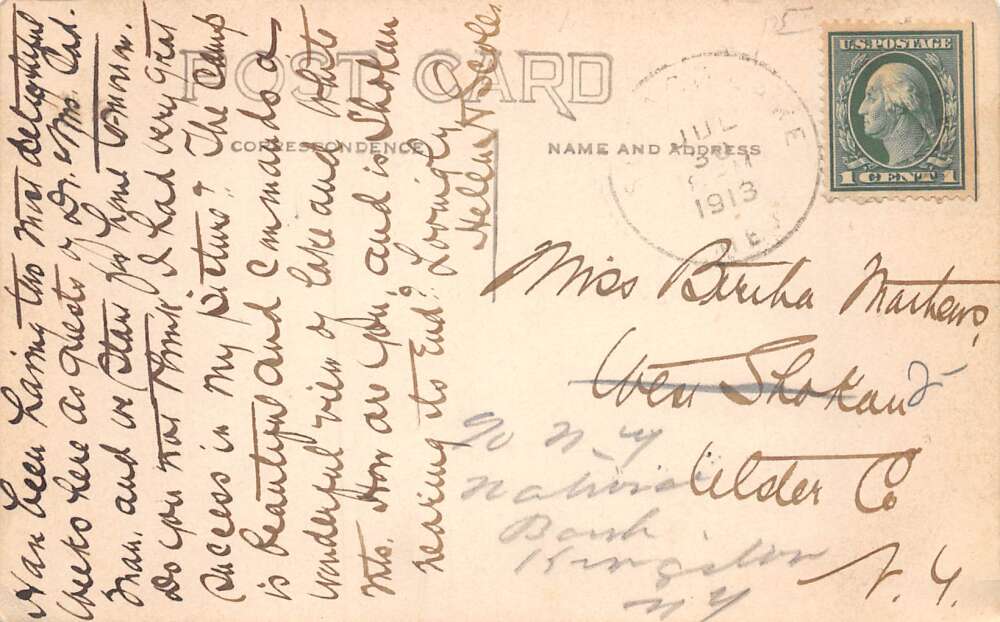 POST CARD
CORRESPONDENCE
NAME AND ADDRESS
Have been having two most delightful
weeks here as guests of Dr. & Mrs. Cad.
man, and we start for home tomorrow.
Do you not think I had very great
success in my pictures? The camp
is beautiful and commands a
wonderful view of lake and white
mts. How are you, and is Shokan
nearing its end? Lovingly
Helen
U.S. POSTAGE
1 CENT 1
JUL
30
1913
ME
Miss Bertha Mathews,
West Shokan
Ulster Co
N. Y.
c/o N-Y
National
Bank
Kingston
NY